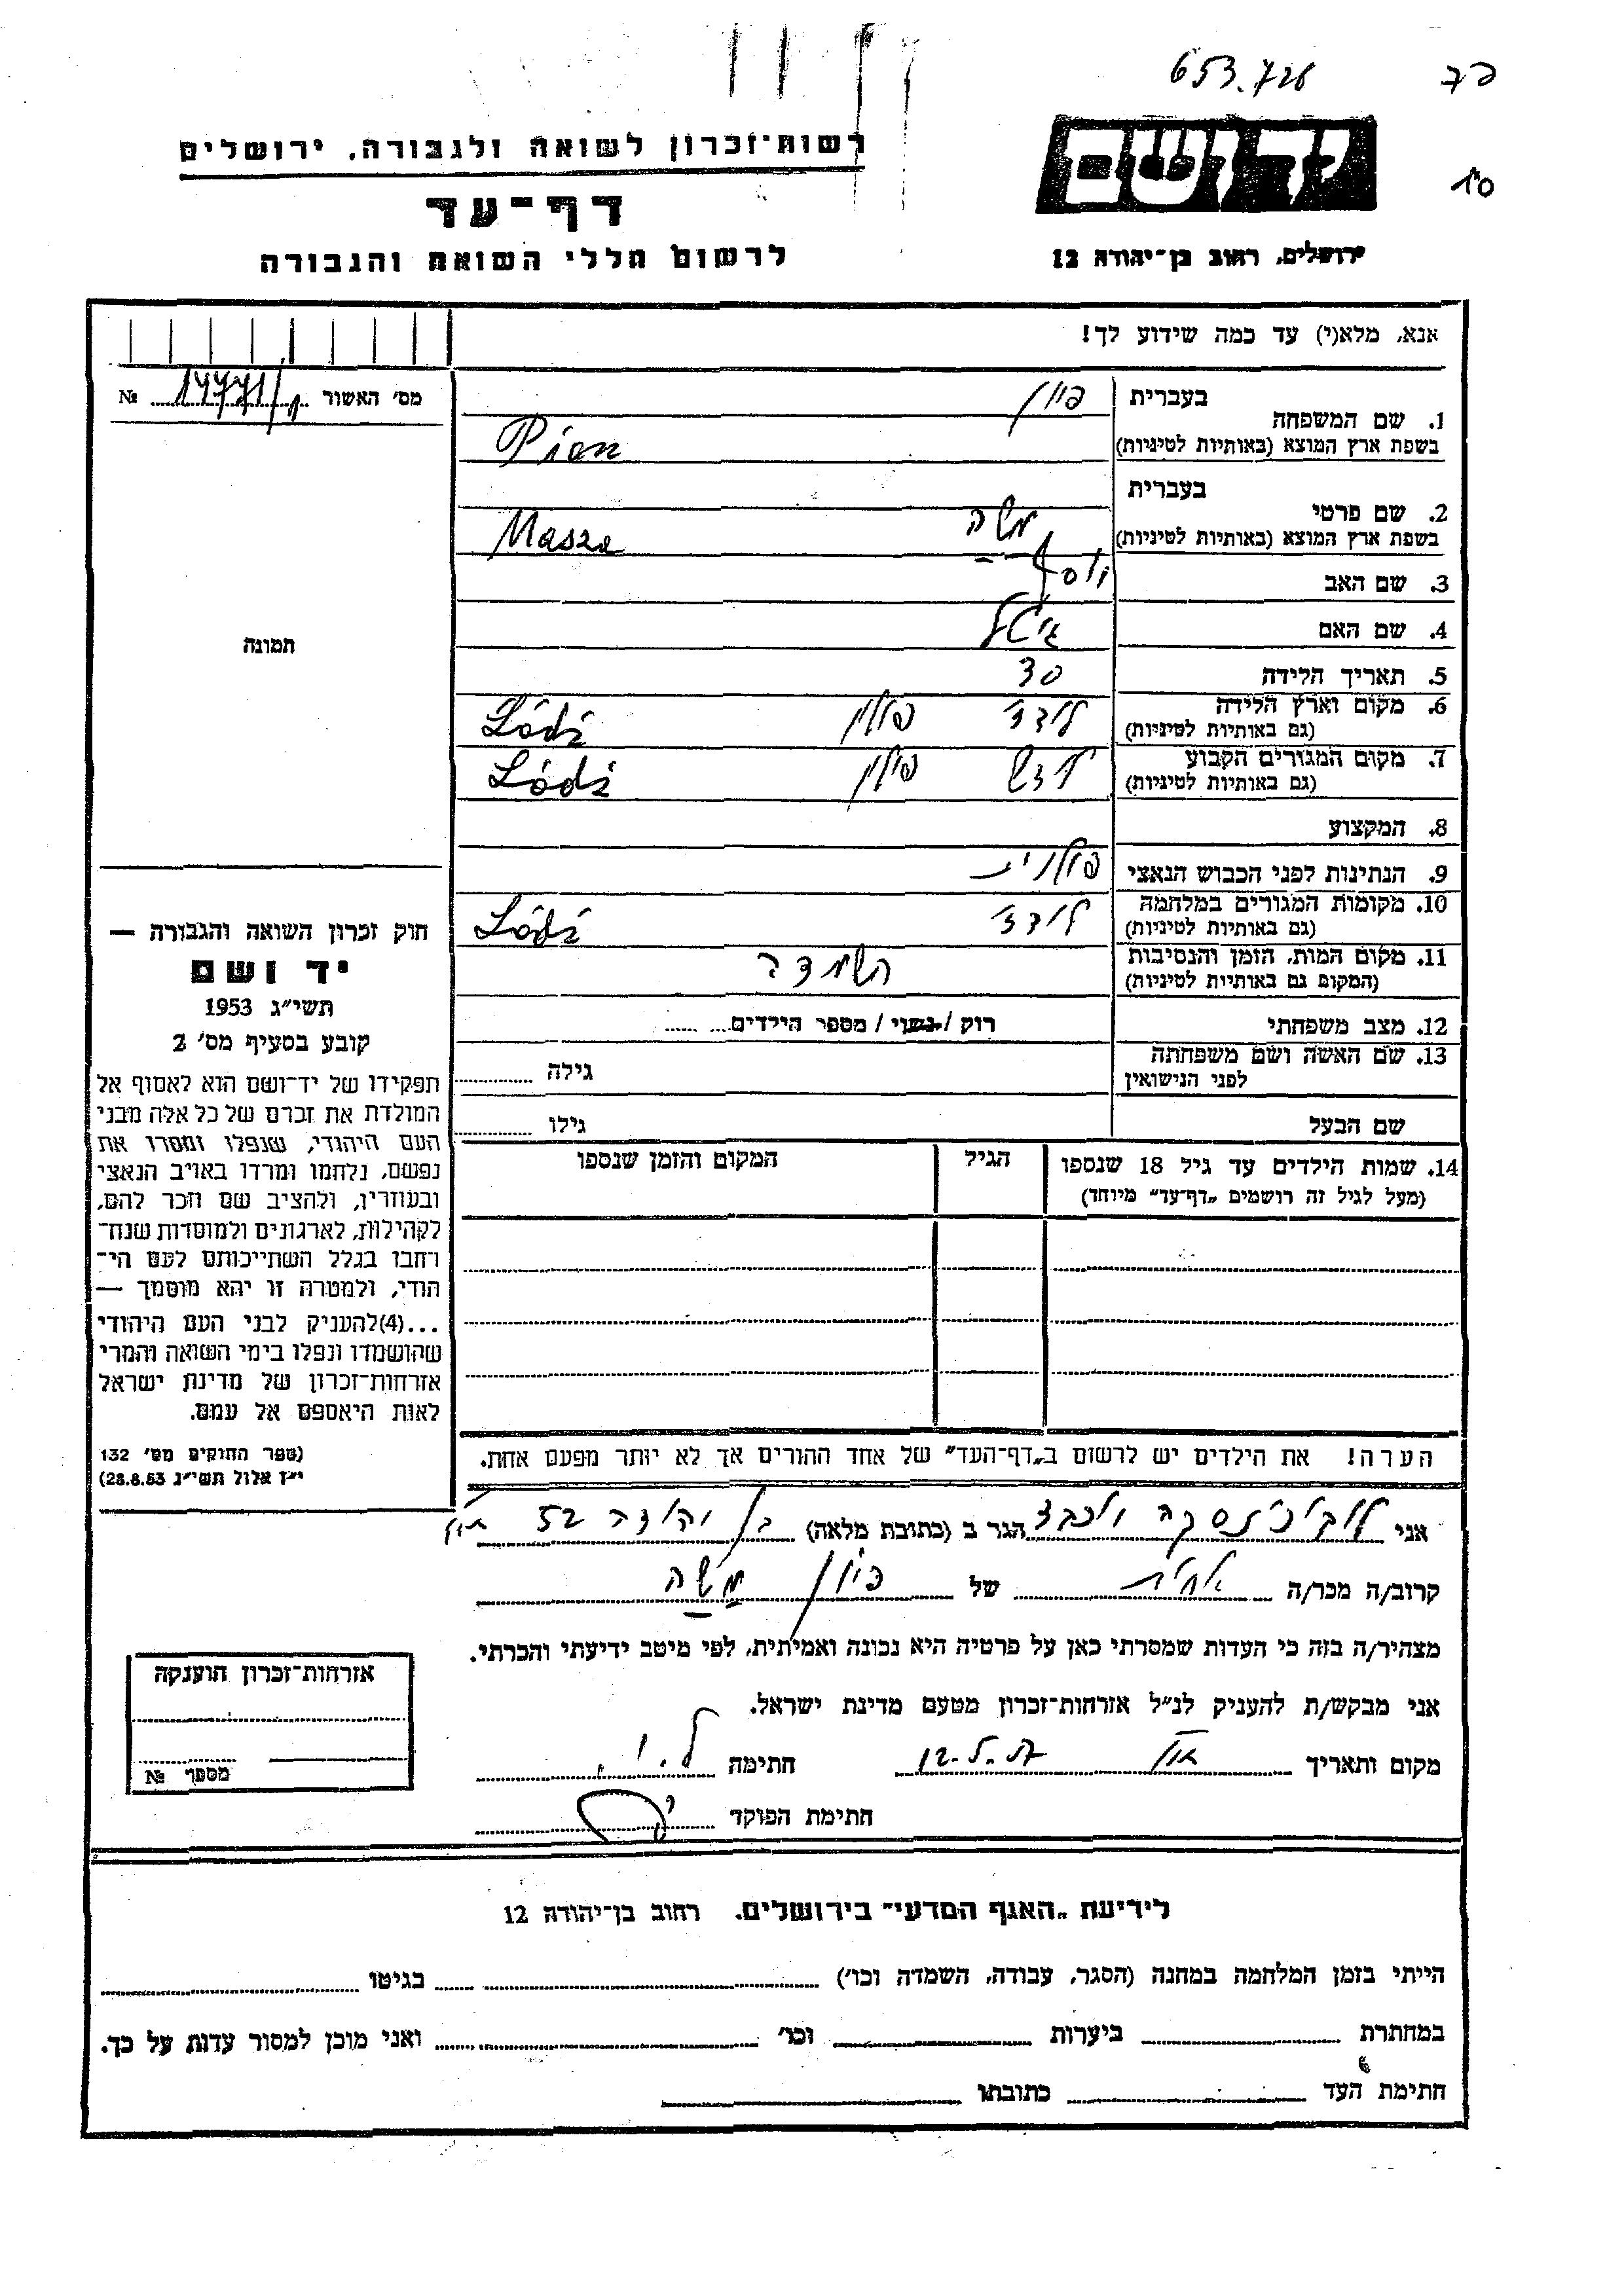 653.726
פד
רשות־זכרון לשואה ולגבורה, ירושלים
ידושם
10
דף־עד
לרשום חללי השואה והגבורה
ירושלים, רחוב בן־יהודה 12
אנא, מלא(י) עד כמה שידוע לך!
מס׳ האשור № 17771/1
1. שם המשפחה
בעברית פיון
בשפת ארץ המוצא (באותיות לטיניות) Pion
2. שם פרטי
בעברית משה
בשפת ארץ המוצא (באותיות לטיניות) Masza
3. שם האב יוסף
4. שם האם גיטל
5. תאריך הלידה 30
6. מקום וארץ הלידה
(גם באותיות לטיניות) לודז׳ פולין Łódź
7. מקום המגורים הקבוע
(גם באותיות לטיניות) לודש פולין Łódź
8. המקצוע
9. הנתינות לפני הכבוש הנאצי פולנית
10. מקומות המגורים במלחמה
(גם באותיות לטיניות) לודז׳ Łódź
11. מקום המות, הזמן והנסיבות
(המקום גם באותיות לטיניות) השמדה
12. מצב משפחתי רוק / נשוי / מספר הילדים
13. שם האשה ושם משפחתה
לפני הנישואין גילה
שם הבעל גילו
14. שמות הילדים עד גיל 18 שנספו הגיל המקום והזמן שנספו
(מעל לגיל זה רושמים „דף־עד״ מיוחד)
הערה! את הילדים יש לרשום ב„דף־העד״ של אחד ההורים אך לא יותר מפעם אחת.
תמונה
חוק זכרון השואה והגבורה —
יד ושם
תשי״ג 1953
קובע בסעיף מס׳ 2
תפקידו של יד־ושם הוא לאסוף אל
המולדת את זכרם של כל אלה מבני
העם היהודי, שנפלו ומסרו את
נפשם, נלחמו ומרדו באויב הנאצי
ובעוזריו, ולהציב שם וזכר להם,
לקהילות, לארגונים ולמוסדות שנח־
רחבו בגלל השתייכותם לעם הי־
הודי, ולמטרה זו יהא מוסמך —
...(4)להעניק לבני העם היהודי
שהושמדו ונפלו בימי השואה והמרי
אזרחות־זכרון של מדינת ישראל
לאות היאספם אל עמם.
(ספר החוקים מס׳ 132
י״ז אלול תשי״ג 28.8.53)
אני יוכבד הגר ב (כתובת מלאה) בן יהודה 52
קרוב/ה מכר/ה אחות של פיון משה
מצהיר/ה בזה כי העדות שמסרתי כאן על פרטיה היא נכונה ואמיתית, לפי מיטב ידיעתי והכרתי.
אני מבקש/ת להעניק לנ״ל אזרחות־זכרון מטעם מדינת ישראל.
מקום ותאריך חתימה ל. י.
חתימת הפוקד
אזרחות־זכרון הוענקה
מספר №
לידיעת „האגף המדעי״ בירושלים. רחוב בן־יהודה 12
הייתי בזמן המלחמה במחנה (הסגר, עבודה, השמדה וכו׳) בגיטו
במחתרת ביערות וכו׳ ואני מוכן למסור עדות על כך.
חתימת העד כתובתו